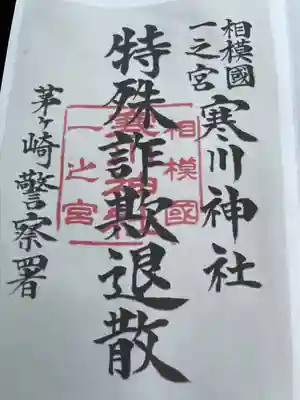 相模國
一之宮
寒川神社
特殊詐欺退散
相模國
一之宮
茅ヶ崎警察署